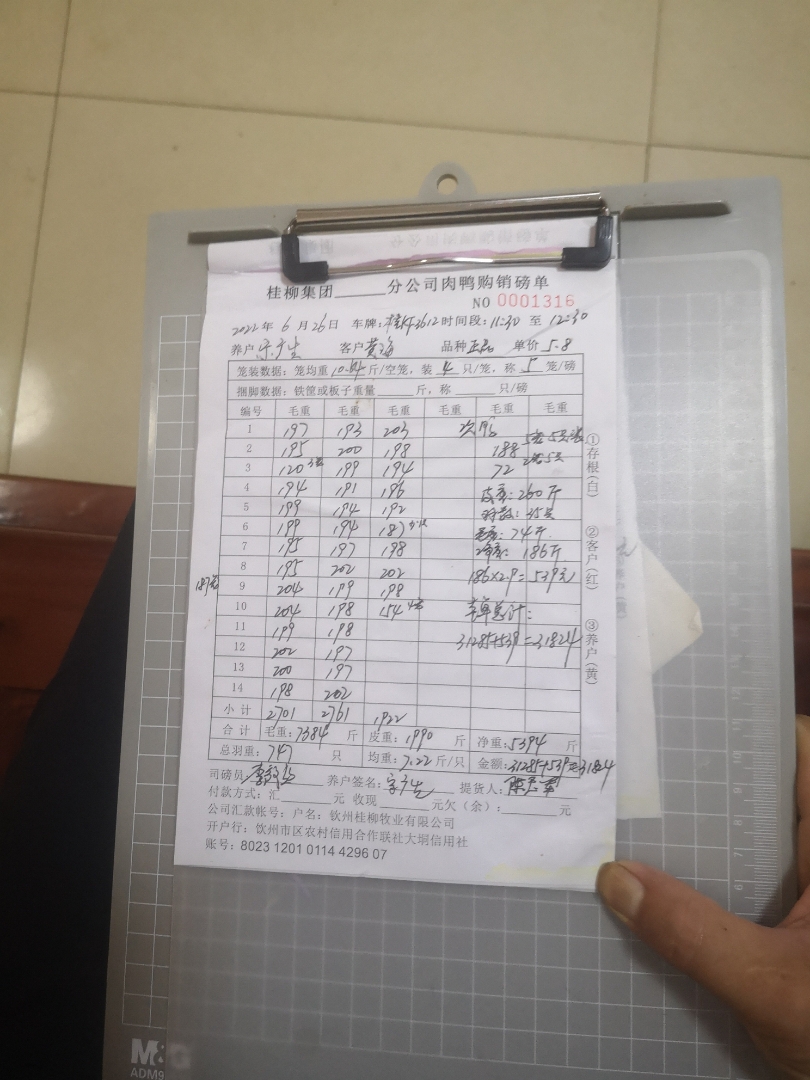 桂柳集团______分公司肉鸭购销磅单
NO 0001316
2022年 6月26日 车牌: 3612 时间段: 11:30 至 12:30
养户 客户 黄海 品种 正品 单价 5.8
笼装数据: 笼均重 10.64 斤/空笼, 装 4 只/笼, 称 5 笼/磅
捆脚数据: 铁筐或板子重量______斤, 称______只/磅
编号 毛重 毛重 毛重 毛重 毛重 毛重
1 197 193 203 次鸭
2 195 200 198 188 5笼
3 120 3笼 199 194 72
4 194 191 196 毛重: 260斤
5 199 194 192 羽数: 35只
6 199 194 187 74斤
7 195 197 198 净重: 186斤
8 195 202 202 186×2.9=539元
9 204 199 198
10 204 198 154 4笼 车单总计:
11 199 198 31285+539=31824
12 202 197
13 200 197
14 198 202
小计 2701 2761 1922
合计 毛重: 7384 斤 皮重: 1990 斤 净重: 5394 斤
总羽重: 747 只 均重: 7.22 斤/只 金额: 31285+539=31824
司磅员 养户签名: 提货人:
付款方式: 汇______元 收现______元欠(余): ______元
公司汇款帐号: 户名: 钦州桂柳牧业有限公司
开户行: 钦州市区农村信用合作联社大垌信用社
账号: 8023 1201 0114 4296 07
①存根(白)
②客户(红)
③养户(黄)
M&G